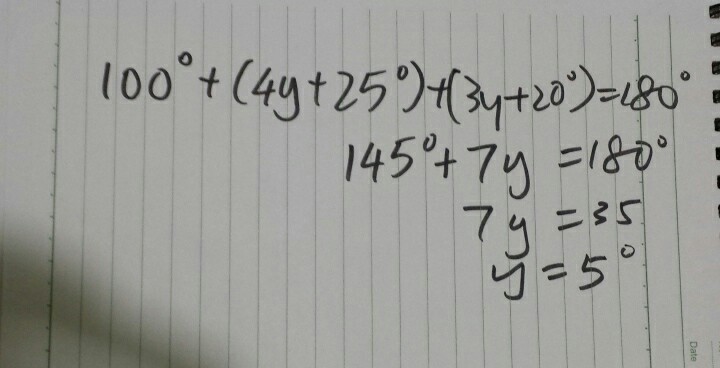 100°+(4y+25°)+(3y+20°)=180°
145°+7y=180°
7y=35
y=5°
Date